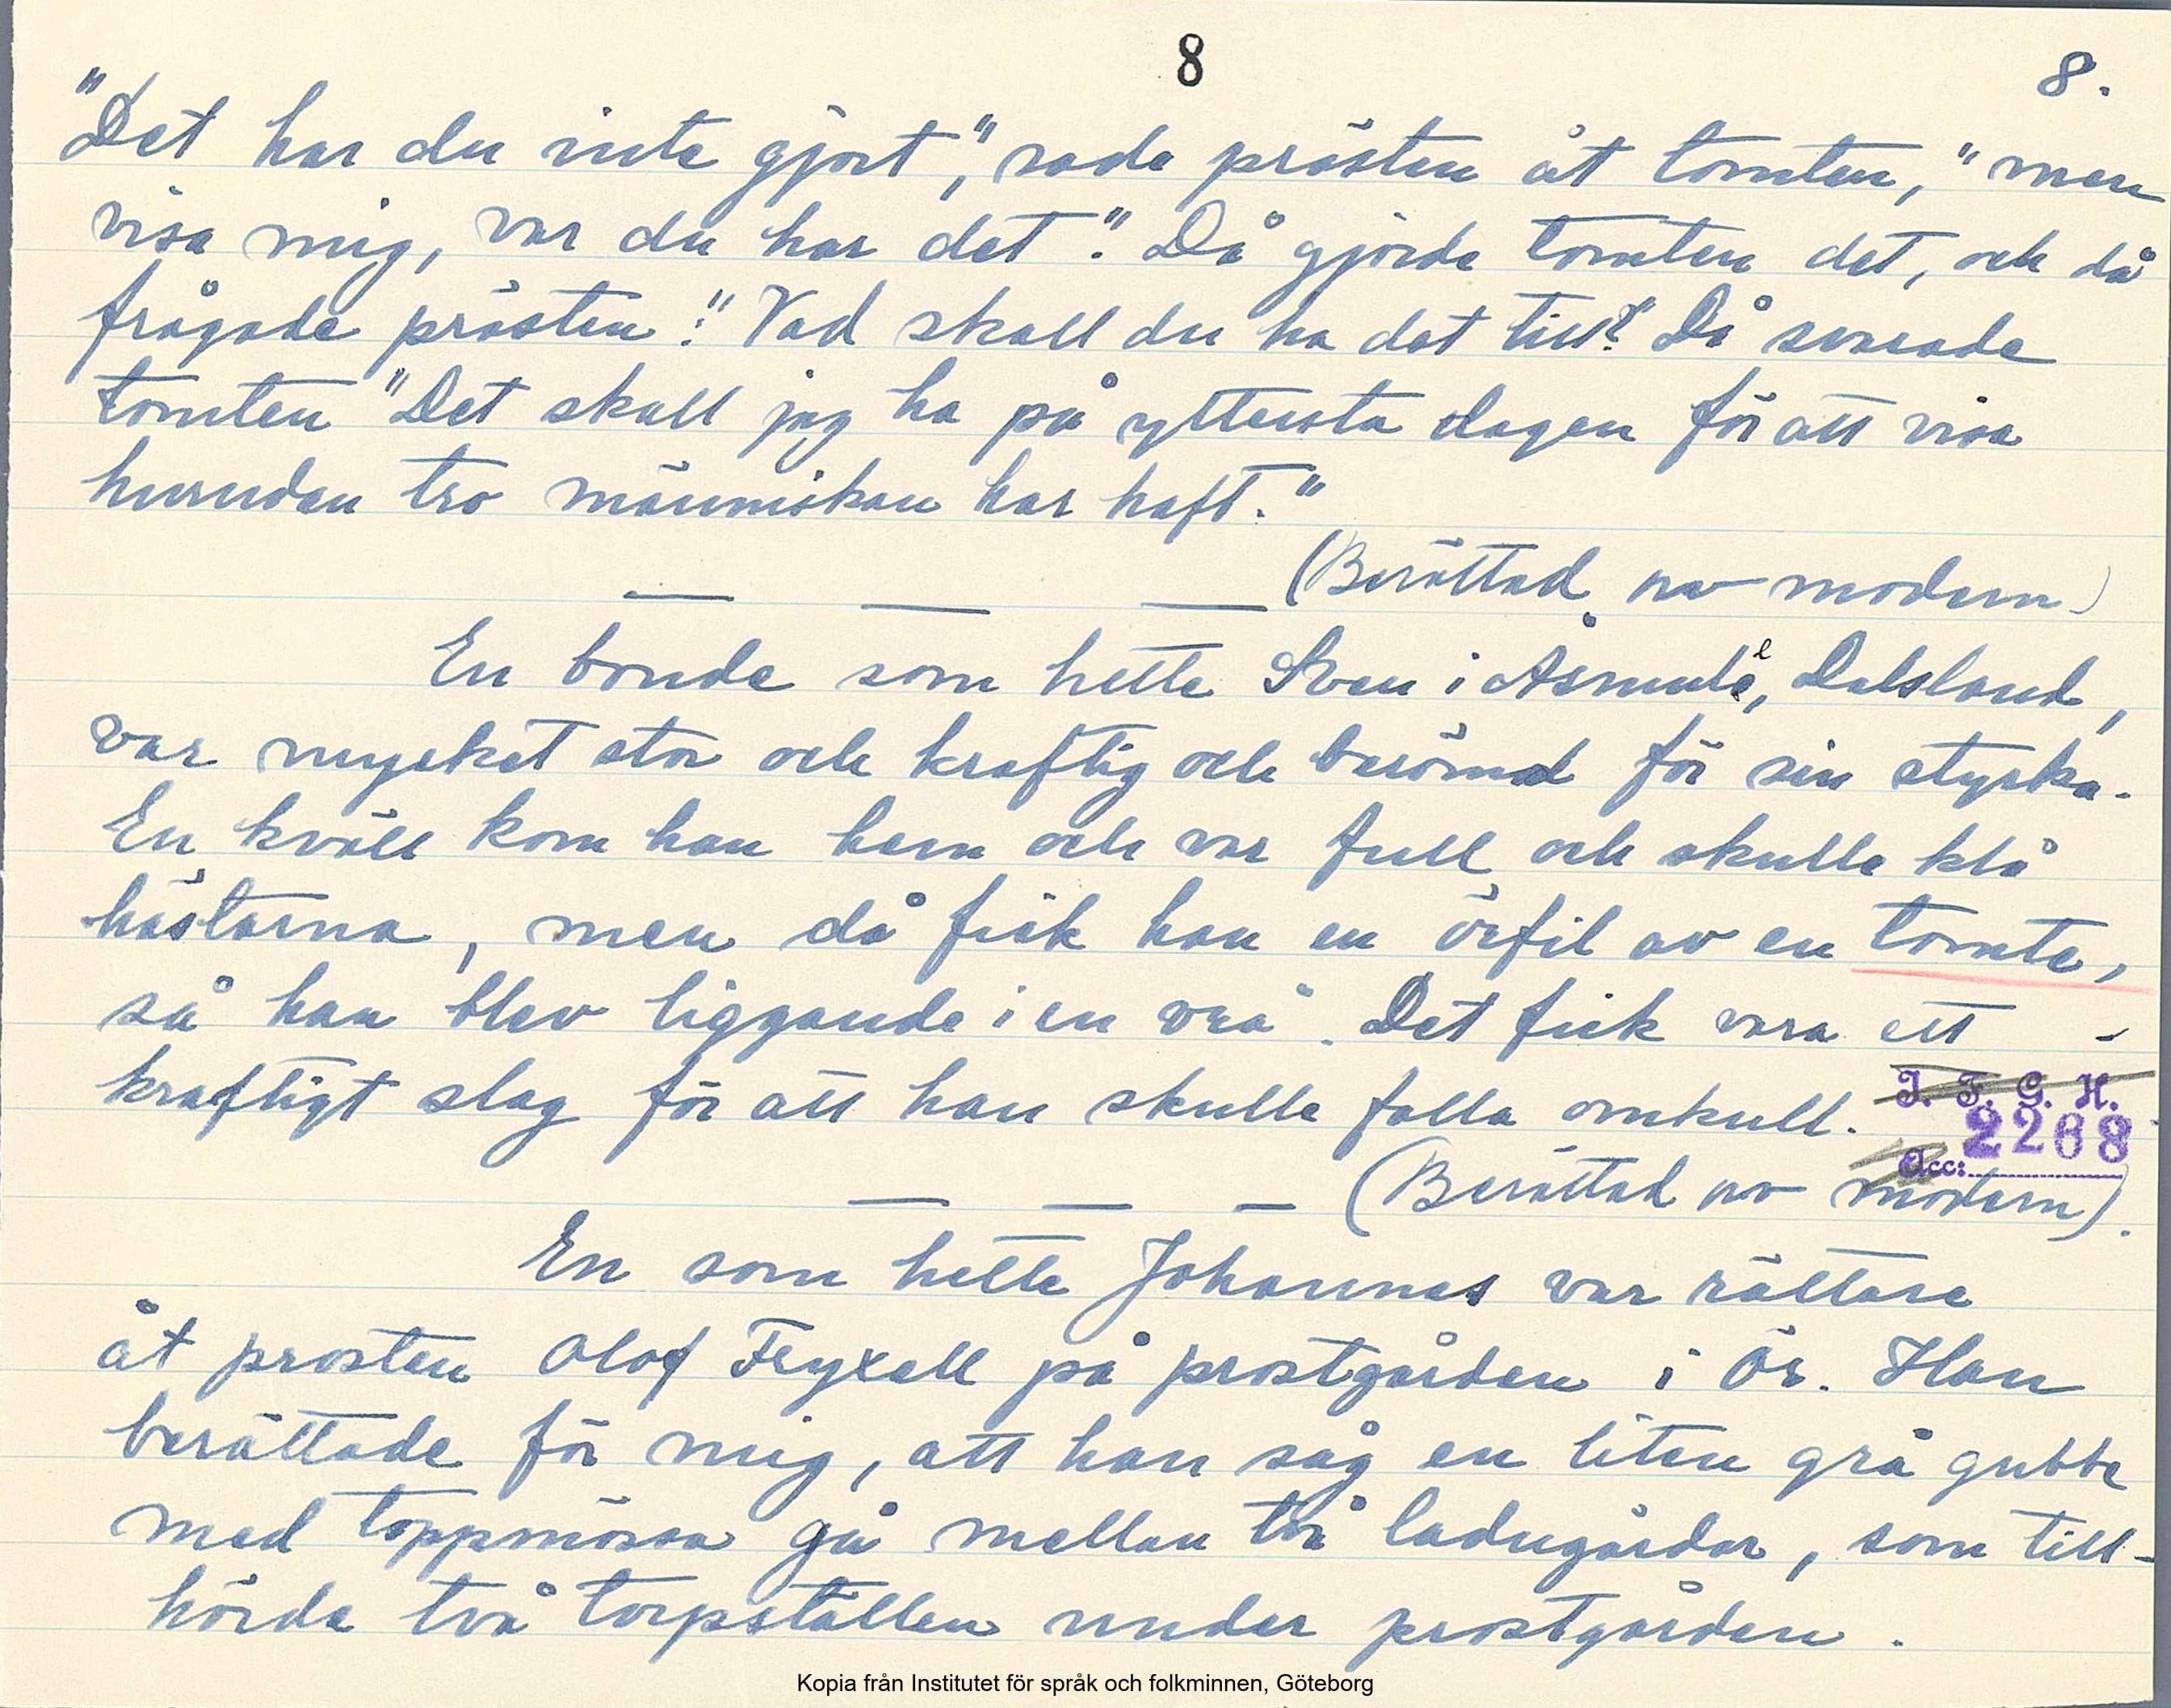 8 8.
"Det har du inte gjort", sade prästen åt tomten, "men
visa mig, var du har det". Då gjorde tomten det, och då
frågade prästen: "Vad skall du ha det till?" Då svarade
tomten "Det skall jag ha på yttersta dagen för att visa
hurudan tro människan har haft."
(Berättad av modern)
En bonde som hette Sven i Dalsland,
var mycket stor och kraftig och berömd för sin styrka.
En kväll kom han hem och var full och skulle klå
hästarna, men då fick han en örfil av en tomte,
så han blev liggande i en vrå. Det fick vara ett -
kraftigt slag för att han skulle falla omkull.
I. F. G. H.
2268
Acc:
(Berättad av modern).
En som hette Johannes var rättare
åt prosten Olof Fryxell på prostgården i Ör. Han
berättade för mig, att han såg en liten grå gubbe
med toppmössa gå mellan två ladugårdar, som till-
hörde två torpställen under prostgården.
Kopia från Institutet för språk och folkminnen, Göteborg